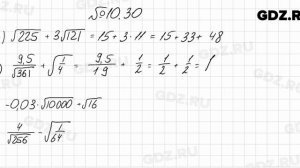 №10.30
GDZ.RU
) √225 + 3√121 = 15 + 3 · 11 = 15 + 33 = 48
) 9,5/√361 + √1/4 = 9,5/19 + 1/2 = 1/2 + 1/2 = 1
-0,03 · √10000 + √16
4/√256 - √1/64
GDZ.RU